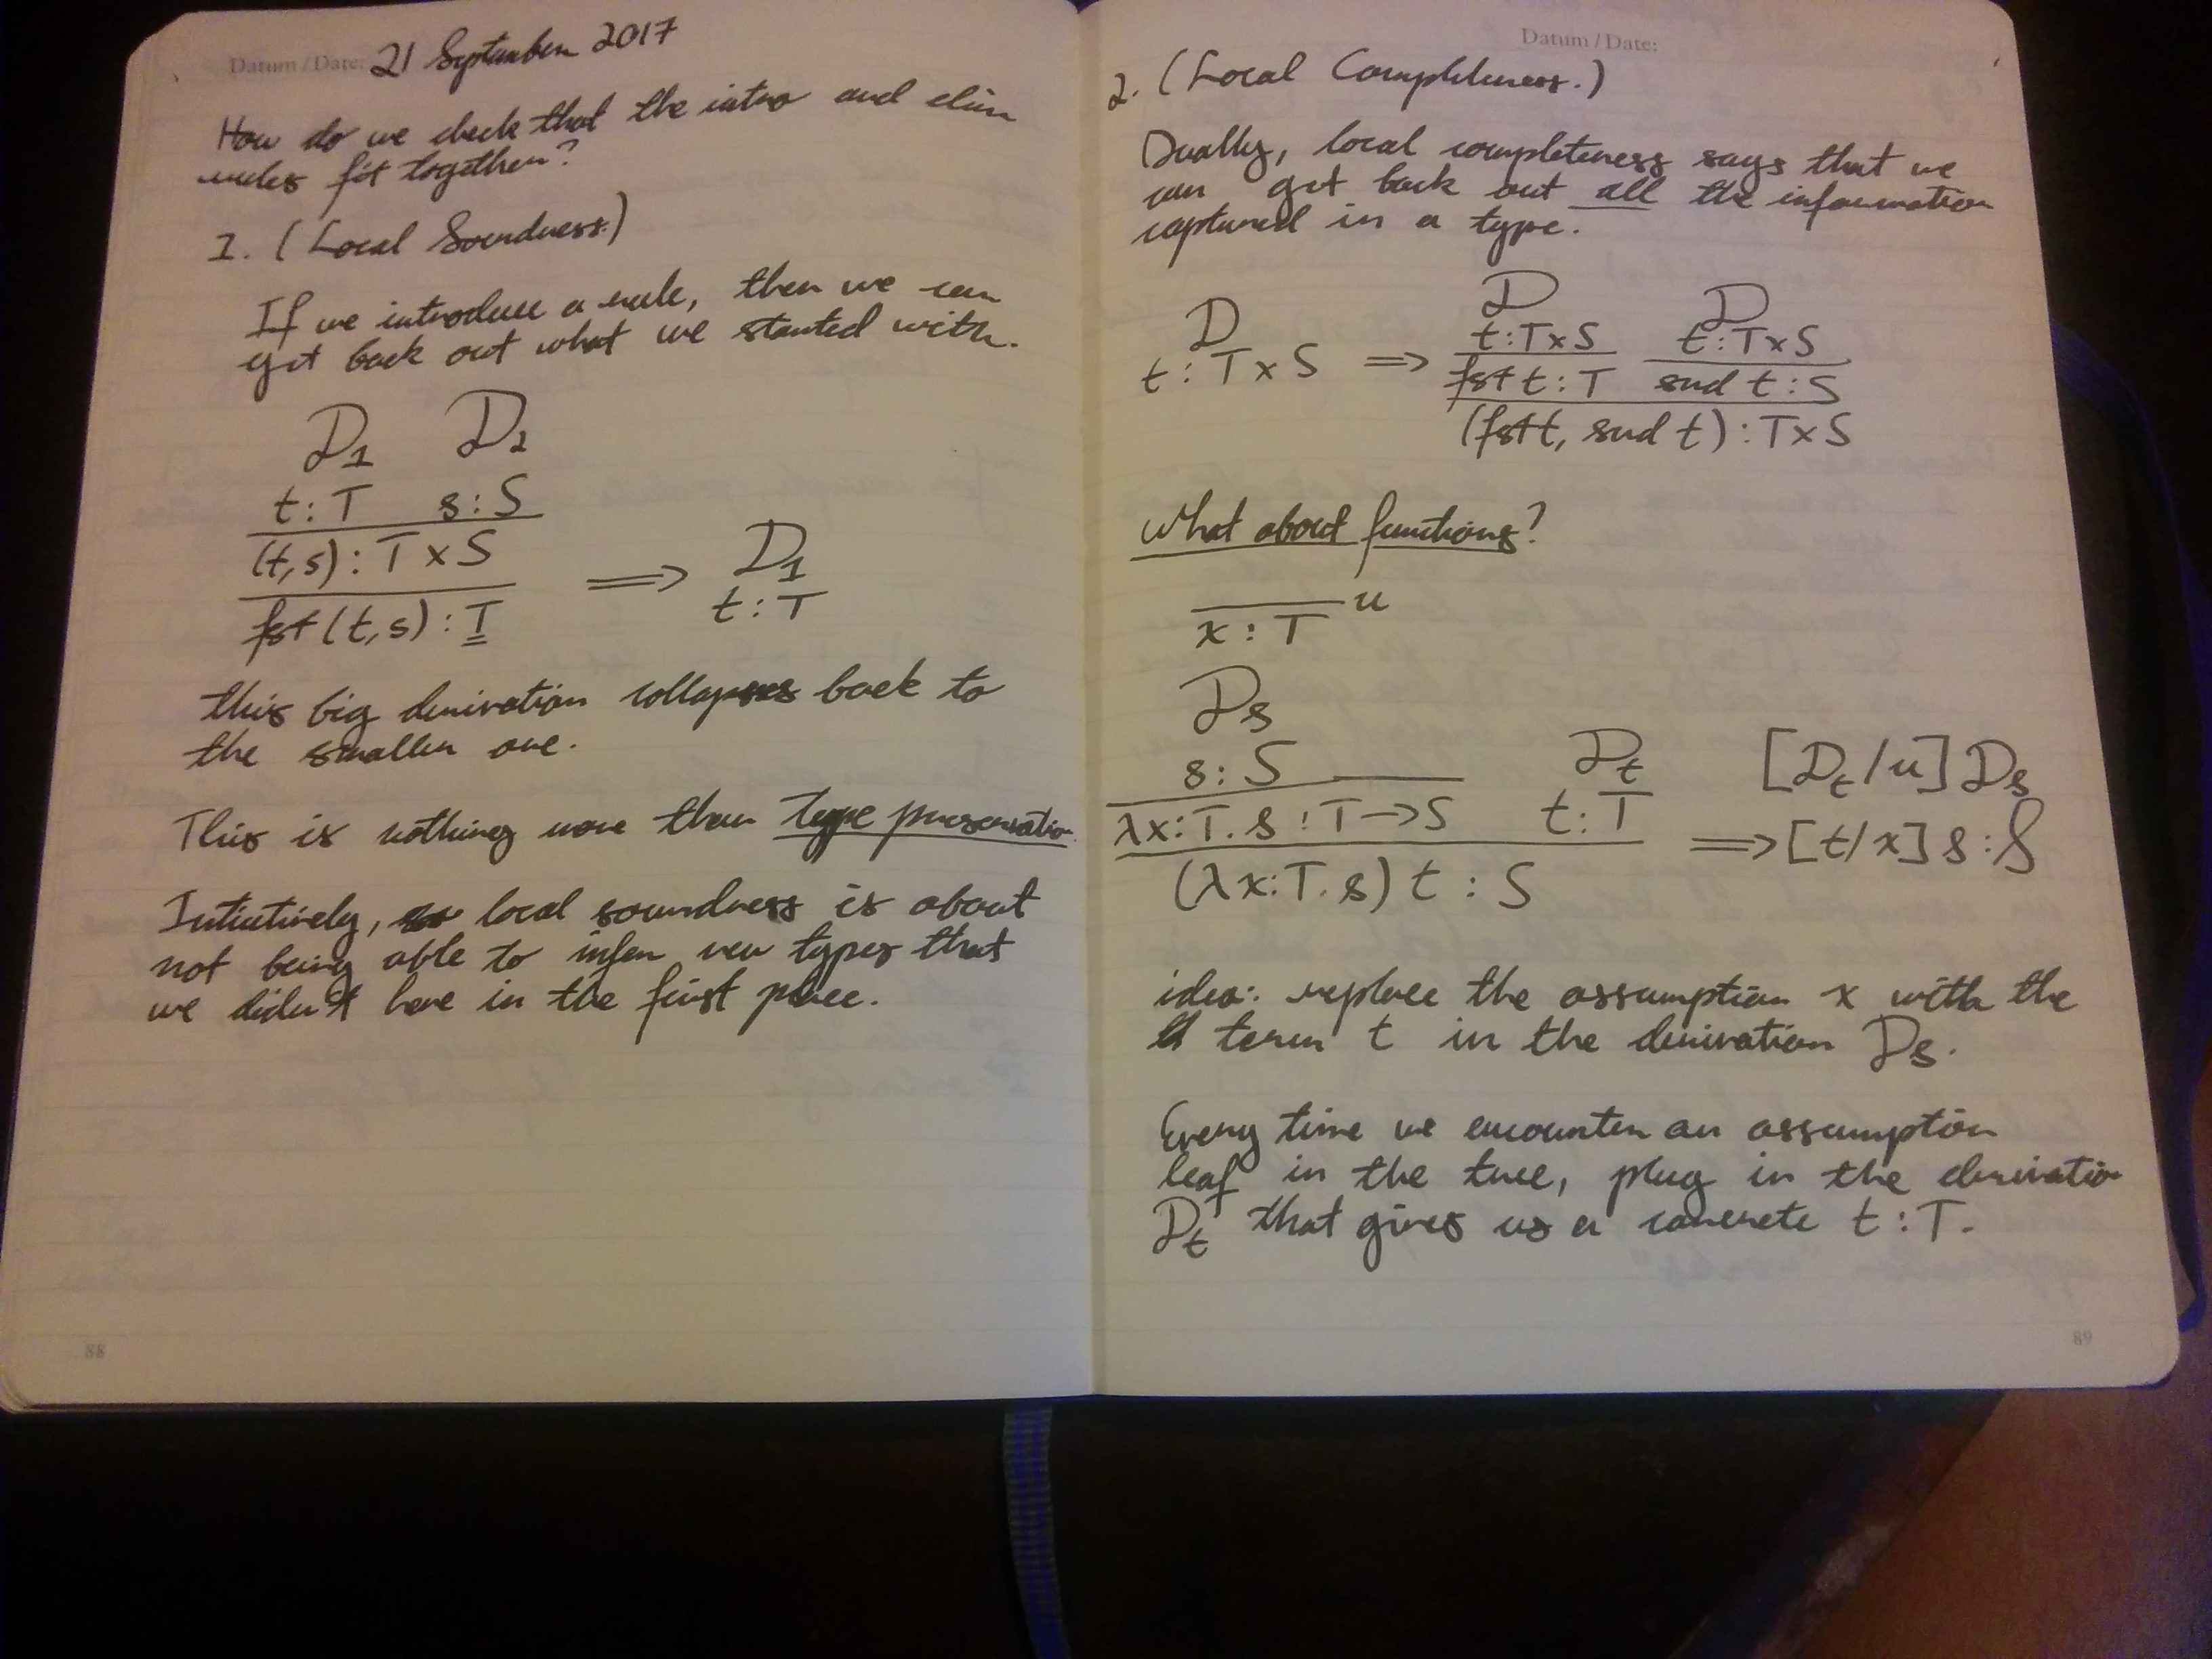 Datum / Date: 21 September 2017
How do we check that the intro and elim
rules fit together?
1. (Local Soundness.)
If we introduce a rule, then we can
get back out what we started with.
D₁ D₂
t : T s : S
(t, s) : T × S
fst (t, s) : T
⟹ D₁
t : T
this big derivation collapses back to
the smaller one.
This is nothing more than type preservatio
Intiutively, local soundness is about
not being able to infer new types that
we didn't have in the first place.
88
Datum / Date:
2. (Local Completeness.)
Dually, local completeness says that we
can get back out all the information
captured in a type.
D
t : T × S
⟹ D D
t : T × S t : T × S
fst t : T snd t : S
(fst t, snd t) : T × S
What about functions?
u
x : T
Dₛ
s : S Dₜ
λx:T. s : T → S t : T
(λx:T. s) t : S
[Dₜ/u] Dₛ
⟹ [t/x] s : S
idea: replace the assumption x with the
term t in the derivation Dₛ.
Every time we encounter an assumption
leaf in the tree, plug in the derivatio
Dₜ that gives us a concrete t : T.
89